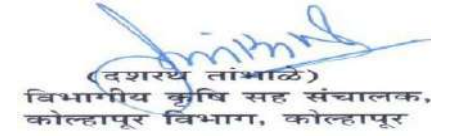 (दशरथ तांभाळे)
विभागीय कृषि सह संचालक,
कोल्हापूर विभाग, कोल्हापूर